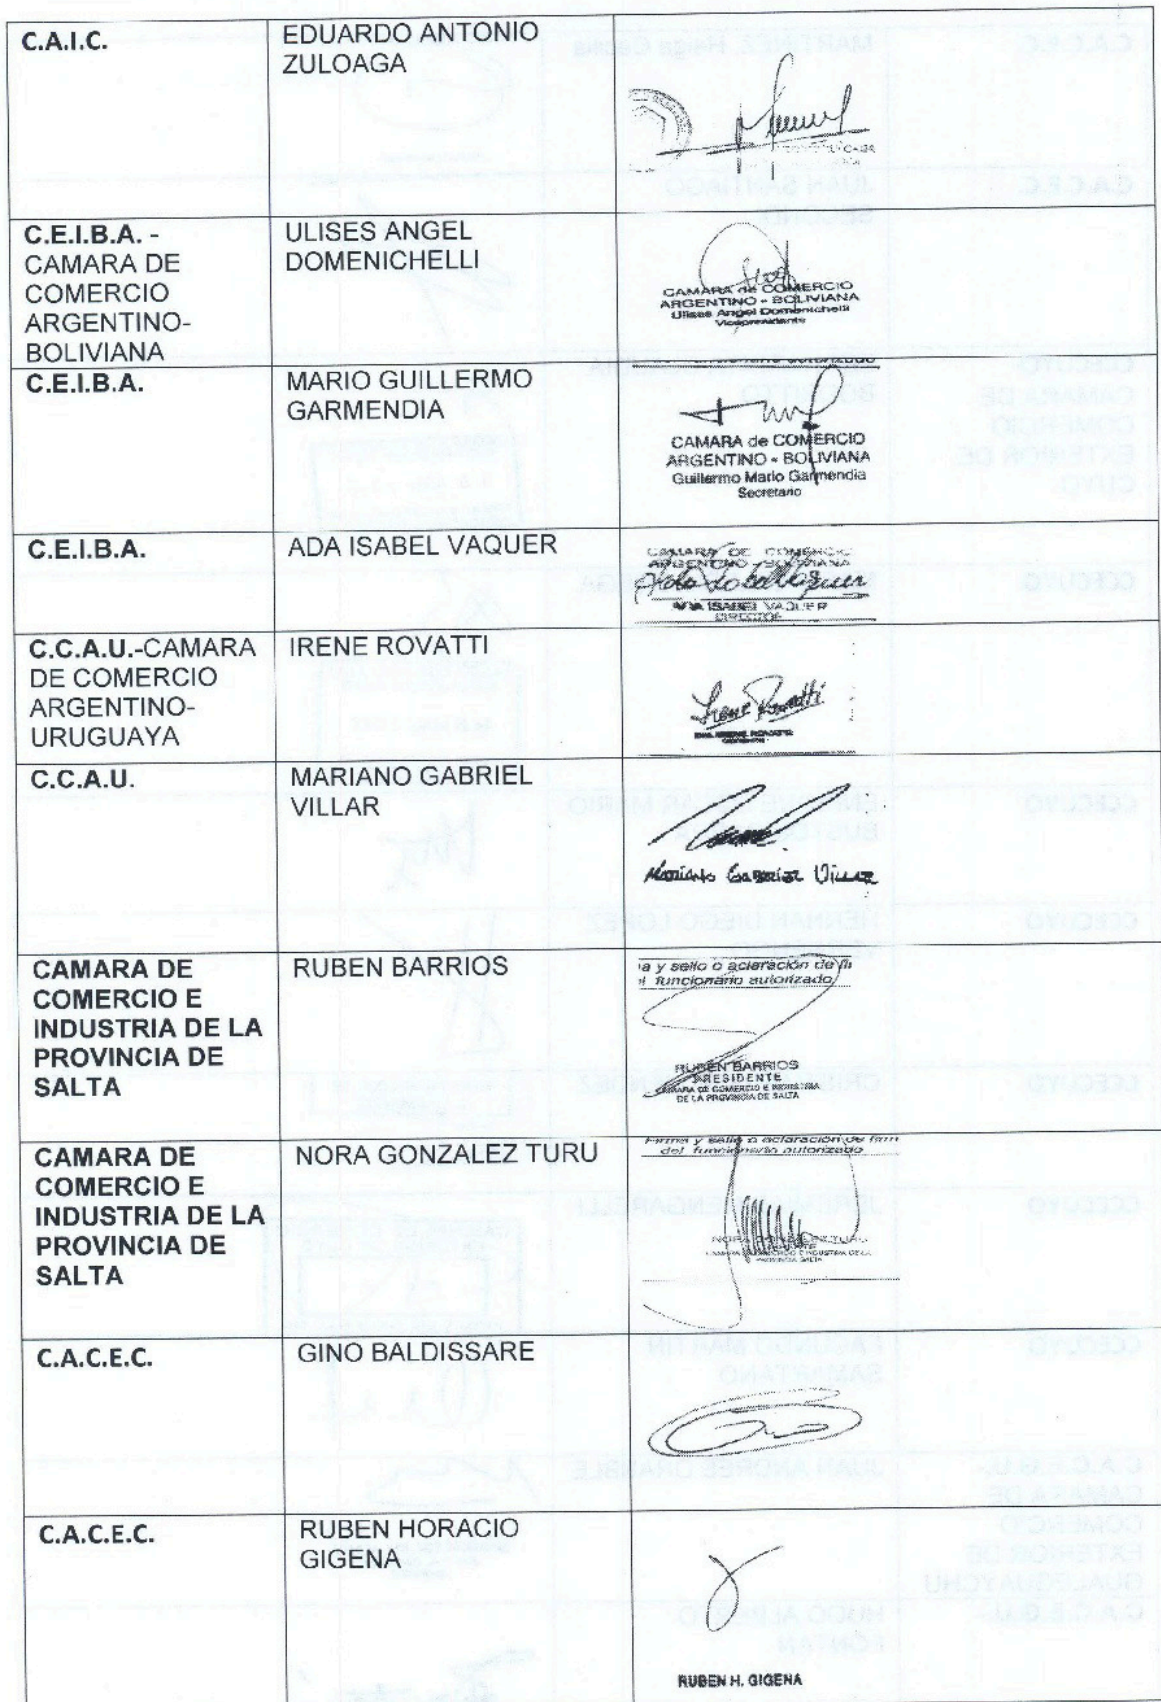 C.A.I.C.
EDUARDO ANTONIO
ZULOAGA
C.E.I.B.A. -
CAMARA DE
COMERCIO
ARGENTINO-
BOLIVIANA
ULISES ANGEL
DOMENICHELLI
CAMARA de COMERCIO
ARGENTINO - BOLIVIANA
Ulises Angel Domenichelli
Vicepresidente
C.E.I.B.A.
MARIO GUILLERMO
GARMENDIA
CAMARA de COMERCIO
ARGENTINO - BOLIVIANA
Guillermo Mario Garmendia
Secretario
C.E.I.B.A.
ADA ISABEL VAQUER
CAMARA DE COMERCIO
ARGENTINO - BOLIVIANA
Ada Isabel Vaquer
ADA ISABEL VAQUER
DIRECTOR
C.C.A.U.-CAMARA
DE COMERCIO
ARGENTINO-
URUGUAYA
IRENE ROVATTI
Irene Rovatti
C.C.A.U.
MARIANO GABRIEL
VILLAR
Mariano Gabriel Villar
CAMARA DE
COMERCIO E
INDUSTRIA DE LA
PROVINCIA DE
SALTA
RUBEN BARRIOS
a y sello o aclaración de fi
el funcionario autorizado
RUBEN BARRIOS
PRESIDENTE
CAMARA DE COMERCIO E INDUSTRIA
DE LA PROVINCIA DE SALTA
CAMARA DE
COMERCIO E
INDUSTRIA DE LA
PROVINCIA DE
SALTA
NORA GONZALEZ TURU
Firma y sello o aclaración de firm
del funcionario autorizado
C.A.C.E.C.
GINO BALDISSARE
C.A.C.E.C.
RUBEN HORACIO
GIGENA
RUBEN H. GIGENA